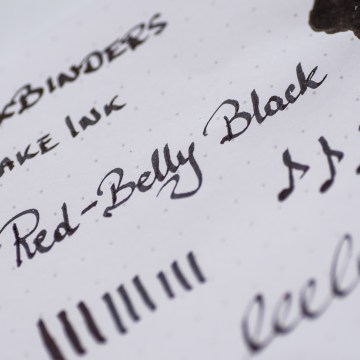 kBinders
ake Ink
Red-Belly Black